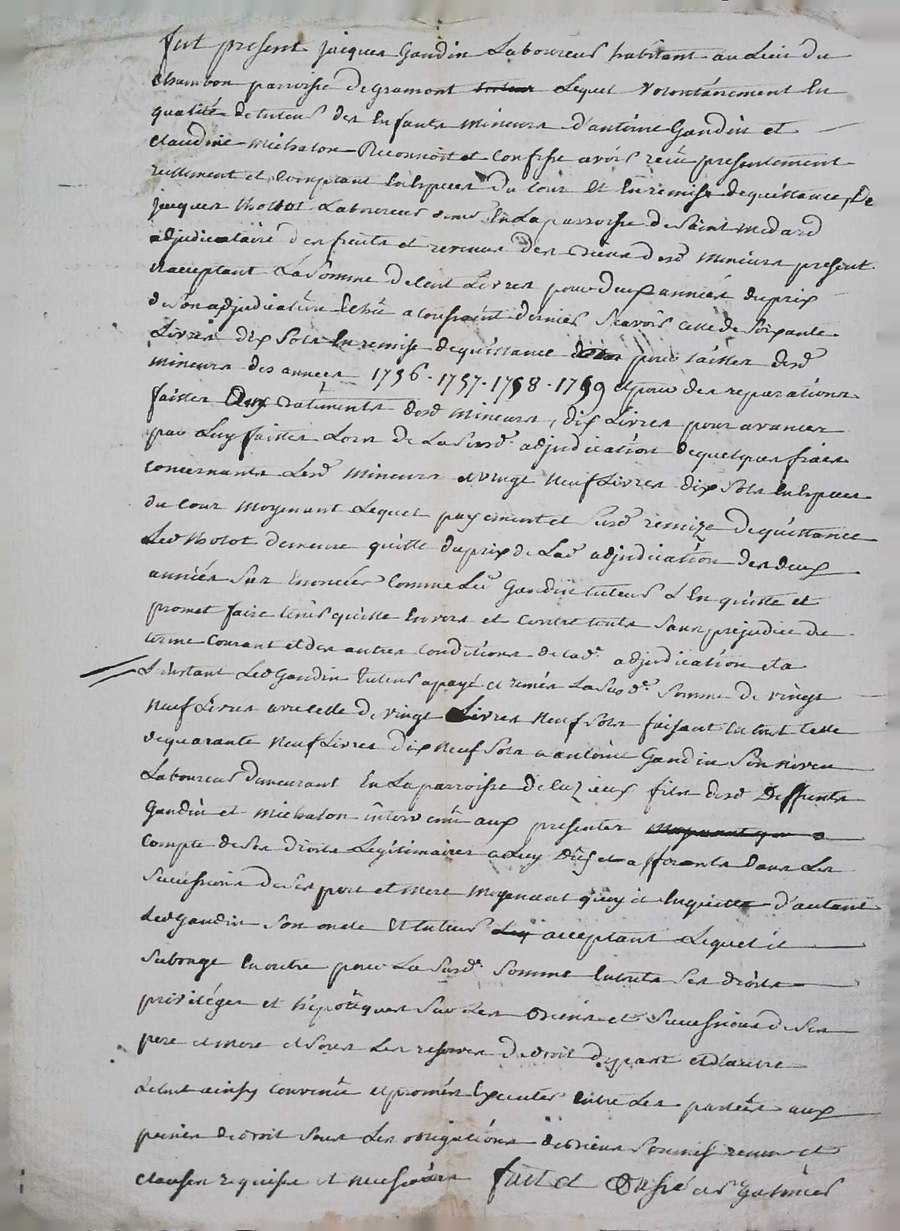 fut present jacques Gandin Laboureur habitant au Lieu du
chambon parroisse de gramont Lequel volontairement En
qualité de tuteur des Enfants mineurs d'antoine Gandin et
claudine Michalon Reconnoit et confesse avoir reçu presentement
reellement et comptant En Especes du cour Et En remise de quittance, De
jacques thollot Laboureur En La parroisse de Saint medard
adjudicataire des fruits et revenus des Biens desd mineurs present
et acceptant La Somme de Cent Livres pour deux années du prix
de Son adjudication Echu a toussaint dernier Scavoir celle de Soixante
Livres dix Sols En remise de quittance pour tailles desd
mineurs des années 1756. 1757. 1758. 1759 et pour des reparations
faittes aux Batiments desd mineurs, dix Livres pour avances
par Luy faittes Lors de La Susd adjudication de quelques frais
concernants Lesd mineurs et vingt neuf Livres dix Sols En Especes
du cour moyenant Lequel payement et Susd remize de quittance
Led tholot demeure quitte du prix de Lad adjudication des deux
années Sus Enoncées comme Led Gandin tuteur L'En quitte et
promet faire tenir quitte Envers et contre touts Sans prejudice du
terme courant et des autres conditions de lad adjudication et a
L'instant Led Gandin tuteur a payé et remis La Susd Somme de vingt
neuf Livres avec celle de vingt Livres neuf Sols faisant En tout celle
de quarante neuf Livres dix neuf Sols a antoine Gandin Son neveu
Laboureur demeurant En La parroisse de Luzieux fils desd Deffunts
Gandin et michalon intervenu aux presentes
compte de Ses droits Legitimaires a Luy dus et afferants dans Les
Successions de Ses pere et mere moyenant quoy il En quitte d'autant
Led Gandin Son oncle Et tuteur acceptant Lequel il
Subroge En outre pour La Susd Somme En touts Ses droits
privilèges et hipoteques Sur Les Biens et Successions de Ses
pere et mere et Sous Les reserves de droit de part et d'autre
Le tout ainsy convenu et promis Executer Entre Les parties aux
peines de droit Sous Les obligations de biens Soumis renon et
clauses requises et necessaires fait et Passé a St Galmier